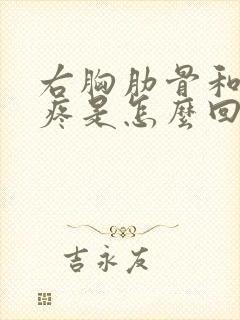 右胸肋骨和
疼是怎麼回
吉永友